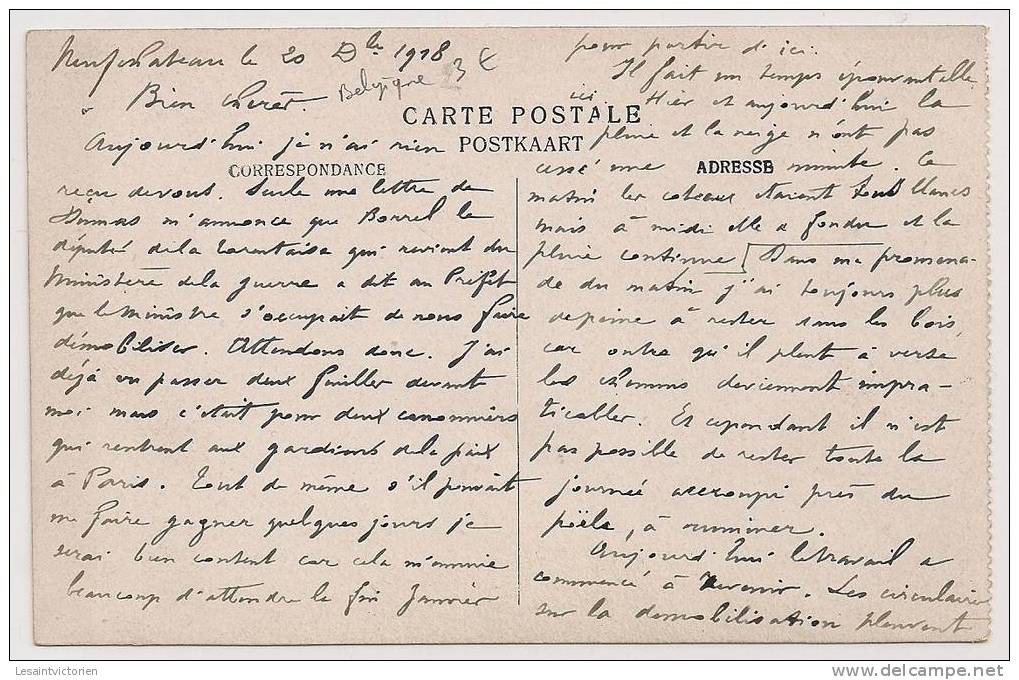 Neufchateau le 20 Dbre 1918
Belgique 3 €
Bien chères
CARTE POSTALE
POSTKAART
CORRESPONDANCE
ADRESSE
Aujourd'hui je n'ai rien
reçu de vous. Seule une lettre de
Dumas m'annonce que Borrel le
député de la Tarentaise qui revient du
Ministère de la guerre a dit au Préfet
que le Ministre s'occupait de nous faire
démobiliser. Attendons donc. J'ai
déjà vu passer deux feuilles devant
moi mais c'était pour deux canonniers
qui rentrent aux gardiens de la paix
à Paris. Tout de même s'il pouvait
me faire gagner quelques jours je
serai bien content car cela m'ennuie
beaucoup d'attendre la fin Janvier
pour partir d'ici.
Il fait un temps épouvantable
ici. Hier et aujourd'hui la
pluie et la neige n'ont pas
cessé une minute. Ce
matin les coteaux étaient tous blancs
mais à midi elle a fondu et la
pluie continue [ Dans ma promena-
de du matin j'ai toujours plus
de peine à rester sous les bois,
car outre qu'il pleut à verse
les chemins deviennent impra-
ticables. Et cependant il n'est
pas possible de rester toute la
journée accroupi près du
poële, à ruminer.
Aujourd'hui le travail a
commencé à revenir. Les circulaires
sur la démobilisation pleuvent
Lesaintvictorien
www.delcampe.net